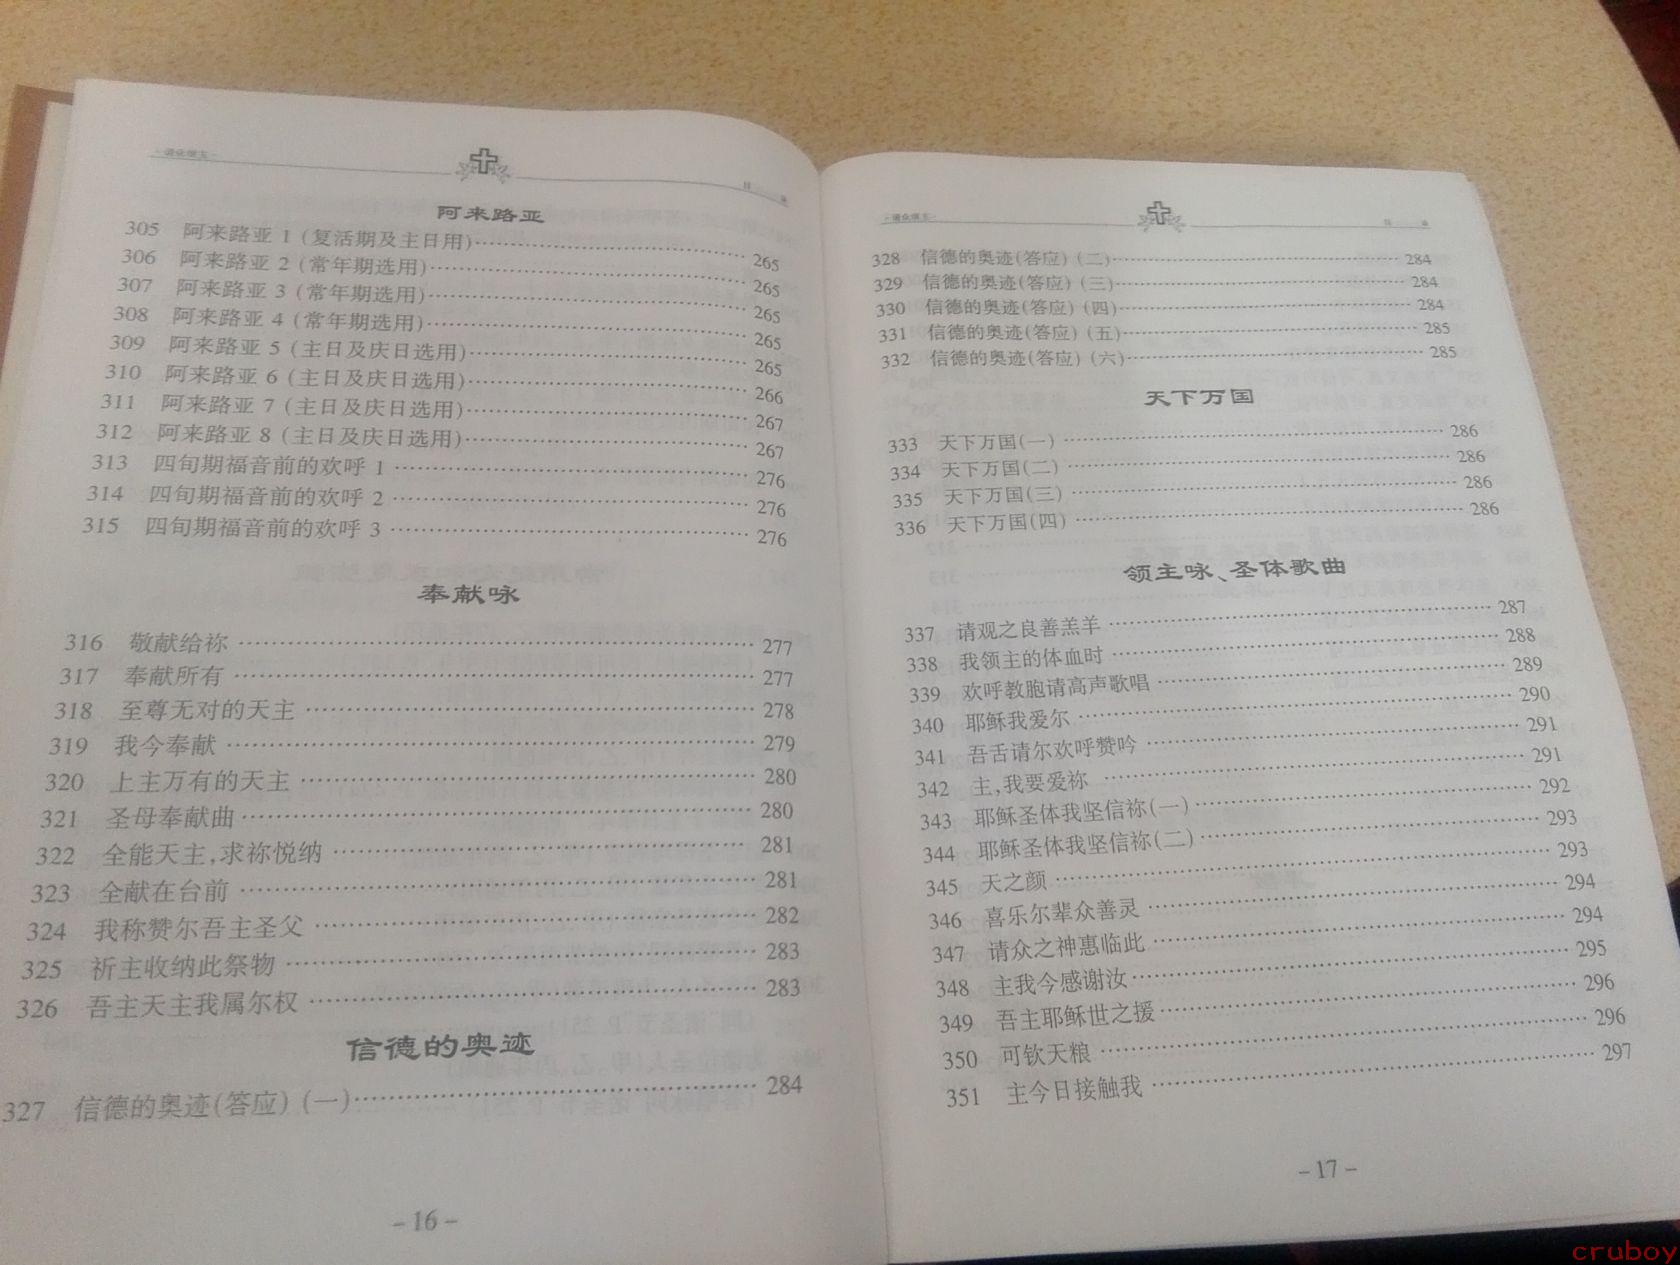 阿来路亚
305 阿来路亚 1 (复活期及主日用)……265
306 阿来路亚 2 (常年期选用)……265
307 阿来路亚 3 (常年期选用)……265
308 阿来路亚 4 (常年期选用)……265
309 阿来路亚 5 (主日及庆日选用)……265
310 阿来路亚 6 (主日及庆日选用)……266
311 阿来路亚 7 (主日及庆日选用)……267
312 阿来路亚 8 (主日及庆日选用)……267
313 四旬期福音前的欢呼 1……276
314 四旬期福音前的欢呼 2……276
315 四旬期福音前的欢呼 3……276
奉献咏
316 敬献给祢……277
317 奉献所有……277
318 至尊无对的天主……278
319 我今奉献……279
320 上主万有的天主……280
321 圣母奉献曲……280
322 全能天主,求祢悦纳……281
323 全献在台前……281
324 我称赞尔吾主圣父……282
325 祈主收纳此祭物……283
326 吾主天主我属尔权……283
信德的奥迹
327 信德的奥迹(答应)(一)……284
-16-
328 信德的奥迹(答应)(二)……284
329 信德的奥迹(答应)(三)……284
330 信德的奥迹(答应)(四)……284
331 信德的奥迹(答应)(五)……285
332 信德的奥迹(答应)(六)……285
天下万国
333 天下万国(一)……286
334 天下万国(二)……286
335 天下万国(三)……286
336 天下万国(四)……286
领主咏、圣体歌曲
337 请观之良善羔羊……287
338 我领主的体血时……288
339 欢呼教胞请高声歌唱……289
340 耶稣我爱尔……290
341 吾舌请尔欢呼赞吟……291
342 主,我要爱祢……291
343 耶稣圣体我坚信祢(一)……292
344 耶稣圣体我坚信祢(二)……293
345 天之颜……293
346 喜乐尔辈众善灵……294
347 请众之神惠临此……294
348 主我今感谢汝……295
349 吾主耶稣世之援……296
350 可钦天粮……296
351 主今日接触我……297
-17-
cruboy